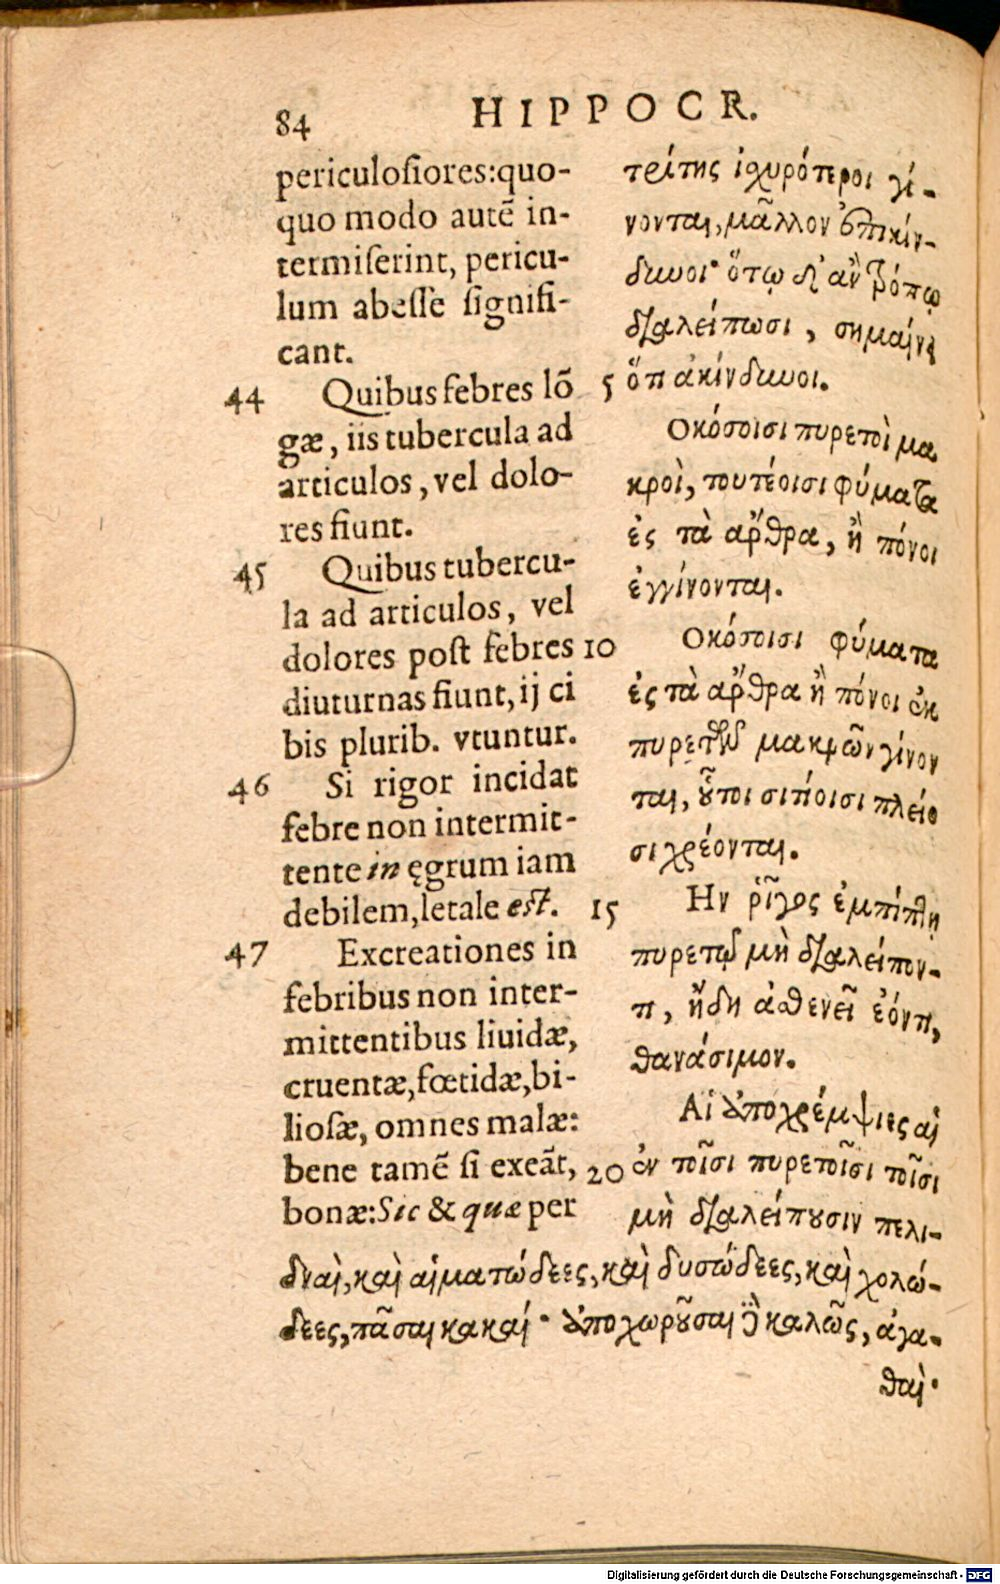 84
HIPPOCR.
periculoſiores:quo-
quo modo autẽ in-
termiſerint, pericu-
lum abeſſe ſignifi-
cant.
44 Quibus febres lõ
gæ, iis tubercula ad
articulos, vel dolo-
res fiunt.
45 Quibus tubercu-
la ad articulos, vel
dolores poſt febres
diuturnas fiunt, ij ci
bis plurib. vtuntur.
46 Si rigor incidat
febre non intermit-
tente in ęgrum iam
debilem, letale eſt.
47 Excreationes in
febribus non inter-
mittentibus liuidæ,
cruentæ, fœtidæ, bi-
lioſæ, omnes malæ:
bene tamẽ ſi exeãt,
bonæ: Sic & quæ per
τρίτης ἰχυρότεροι γί-
νονται, μᾶλλον ἐπικίν-
δυνοι· ὅτῳ δ' ἂν τρόπῳ
διαλείπωσι, σημαίνει
5 ὅτι ἀκίνδυνοι.
Οκόσοισι πυρετοὶ μα
κροὶ, τουτέοισι φύματα
ἐς τὰ ἄρθρα, ἢ πόνοι
ἐγγίνονται.
10 Οκόσοισι φύματα
ἐς τὰ ἄρθρα ἢ πόνοι ἐκ
πυρετῶν μακρῶν γίνον
ται, οὗτοι σιτίοισι πλείο
σι χρέονται.
15 Ην ῥῖγος ἐμπίπτῃ
πυρετῷ μὴ διαλείπον-
τι, ἤδη ἀσθενεῖ ἐόντι,
θανάσιμον.
Αἱ ἀποχρέμψιες αἱ
20 ἐν τοῖσι πυρετοῖσι τοῖσι
μὴ διαλείπουσιν πελι-
δναὶ, καὶ αἱματώδεες, καὶ δυσώδεες, καὶ χολώ-
δεες, πᾶσαι κακαί· ἀποχωροῦσαι δὲ καλῶς, ἀγα-
θαὶ·
Digitalisierung gefördert durch die Deutsche Forschungsgemeinschaft - DFG